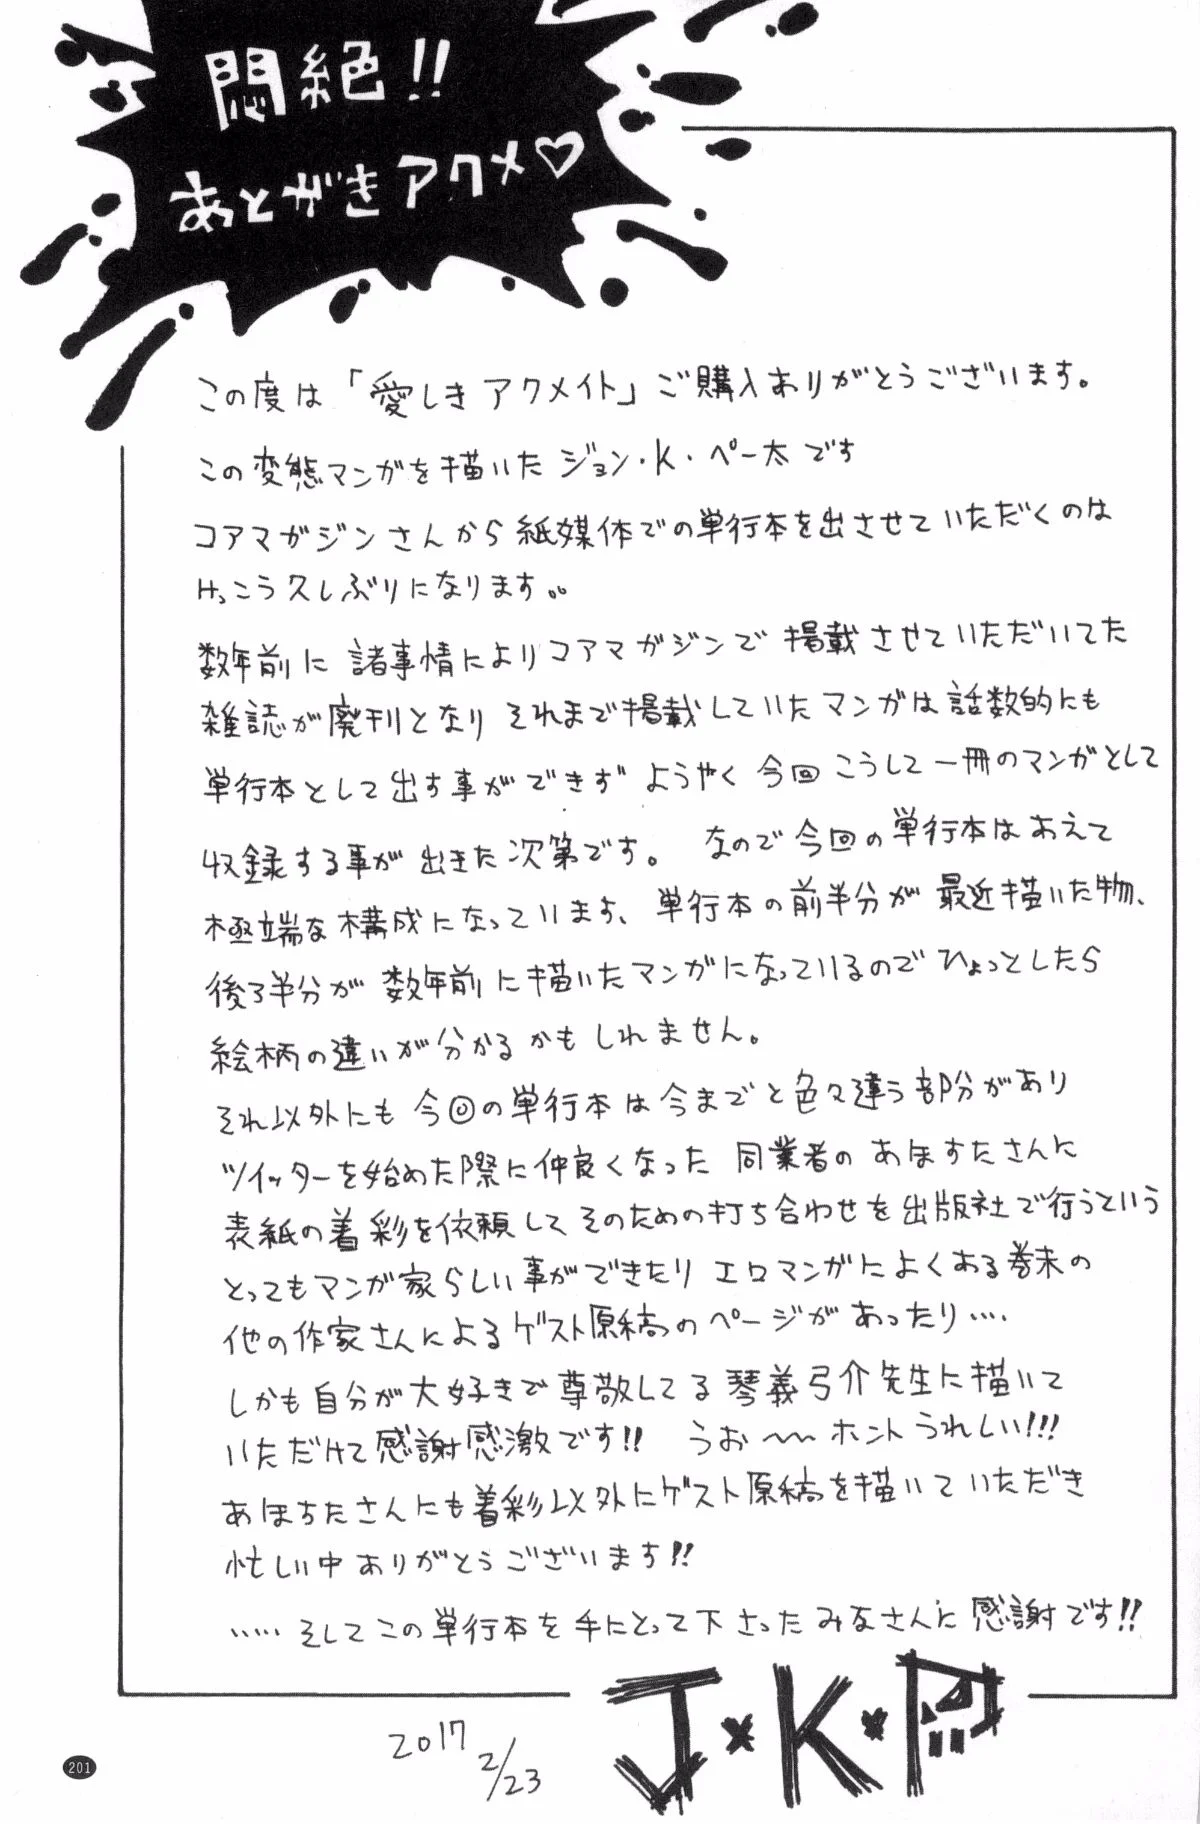 悶絶!!
あとがきアクメ♡
この度は「愛しきアクメイト」ご購入ありがとうございます。
この変態マンガを描いたジョン・K・ペー太です
コアマガジンさんから紙媒体での単行本を出させていただくのは
けっこう久しぶりになります。。
数年前に諸事情によりコアマガジンで掲載させていただいてた
雑誌が廃刊となりそれまで掲載していたマンガは話数的にも
単行本として出す事ができずようやく今回こうして一冊のマンガとして
収録する事が出きた次第です。なので今回の単行本はあえて
極端な構成になっています、単行本の前半分が最近描いた物、
後ろ半分が数年前に描いたマンガになっているのでひょっとしたら
絵柄の違いが分かるかもしれません。
それ以外にも今回の単行本は今までと色々違う部分があり
ツイッターを始めた際に仲良くなった同業者のあほすたさんに
表紙の着彩を依頼してそのための打ち合わせを出版社で行うという
とってもマンガ家らしい事ができたりエロマンガによくある巻末の
他の作家さんによるゲスト原稿のページがあったり・・・
しかも自分が大好きで尊敬してる琴義弓介先生に描いて
いただけて感謝感激です!!うお〜〜ホントうれしい!!!
あほすたさんにも着彩以外にゲスト原稿を描いていただき
忙しい中ありがとうございます!!
・・・・・そしてこの単行本を手にとって下さったみなさんに感謝です!!
J・K・P
2017 2/23
201